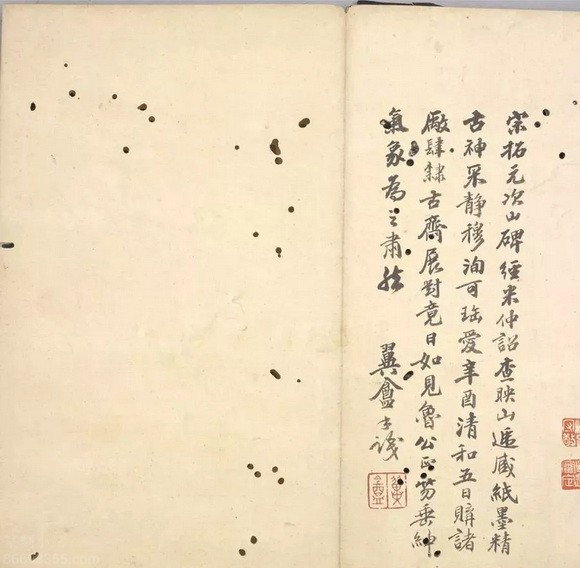 宋拓元次山碑經米仲詔查映山遞藏紙墨精
古神采靜穆洵可珤愛辛酉清和五日購諸
廠肆隸古齋展對竟日如見魯公正笏垂紳
氣象為之肅然
翼盦書識